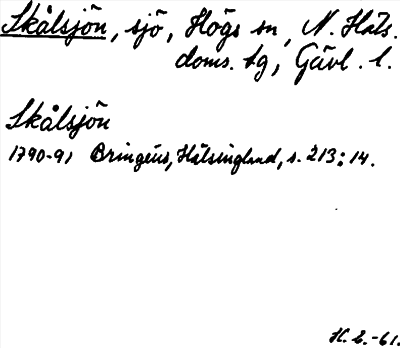 Skålsjön, sjö, Högs sn, N. Häls.
doms. tg, Gävl. l.
Skålsjön
1790-91 Bringéus, Hälsingland, s. 213:14.
H. L. -61.